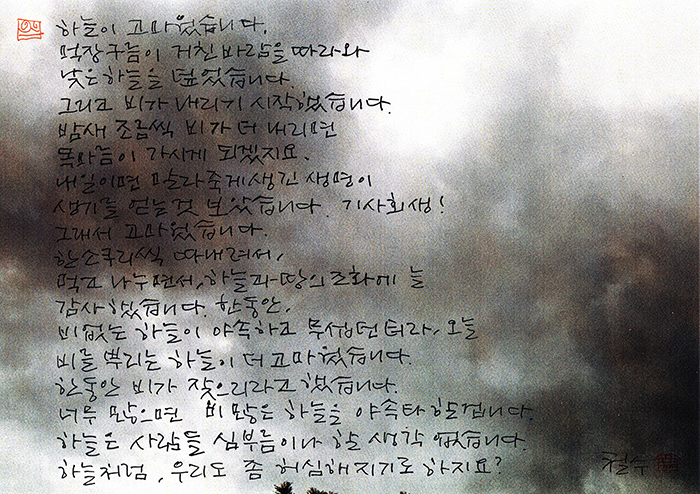 하늘이 고마웠습니다.
먹장구름이 거친 바람을 따라와
낮은 하늘을 덮었습니다.
그리고 비가 내리기 시작했습니다.
밤새 조금씩 비가 더 내리면
목마름이 가시게 되겠지요.
내일이면 말라죽게 생긴 생명이
생기를 얻는 것 보았습니다. 기사회생!
그래서 고마웠습니다.
한소쿠리씩 따내려서,
먹고 나누면서, 하늘과 땅의 조화에 늘
감사했습니다. 한동안,
비없는 하늘이 야속하고 무섭던 터라, 오늘
비를 뿌리는 하늘이 더 고마웠습니다.
한동안 비가 잦으리라고 했습니다.
너무 많으면 비 많은 하늘을 야속타 할겁니다.
하늘은 사람들 심부름이나 할 생각 없습니다.
하늘처럼, 우리도 좀 허심해지기로 하지요?
철수